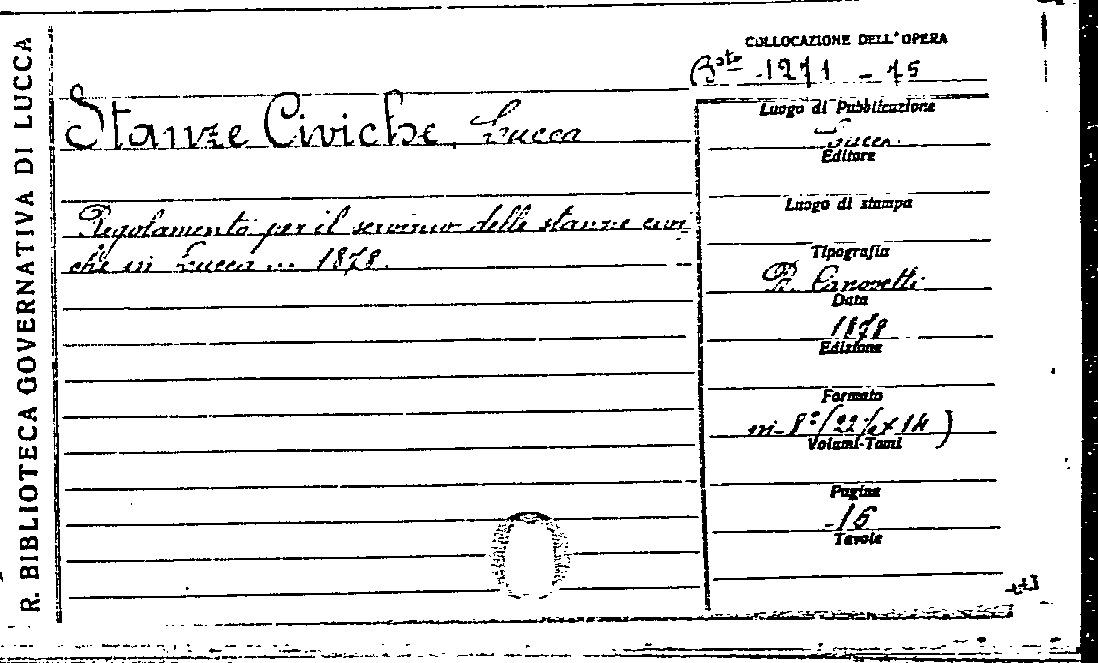 R. BIBLIOTECA GOVERNATIVA DI LUCCA
COLLOCAZIONE DELL'OPERA
Bta 1271 - 15
Stanze Civiche, Lucca
Regolamento per il servizio delle stanze civi
che in Lucca ... 1878.
Luogo di Pubblicazione
Lucca.
Editore
Luogo di stampa
Tipografia
B. Canovetti
Data
1878
Edizione
Formato
in-8° (22½ x 14)
Volumi-Tomi
Pagine
15
Tavole